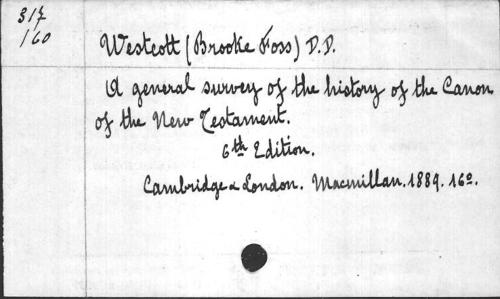 317
160
Westcott (Brooke Foss) D.D.
A general survey of the history of the Canon
of the New Testament.
6th Edition.
Cambridge & London. Macmillan. 1889. 16º.